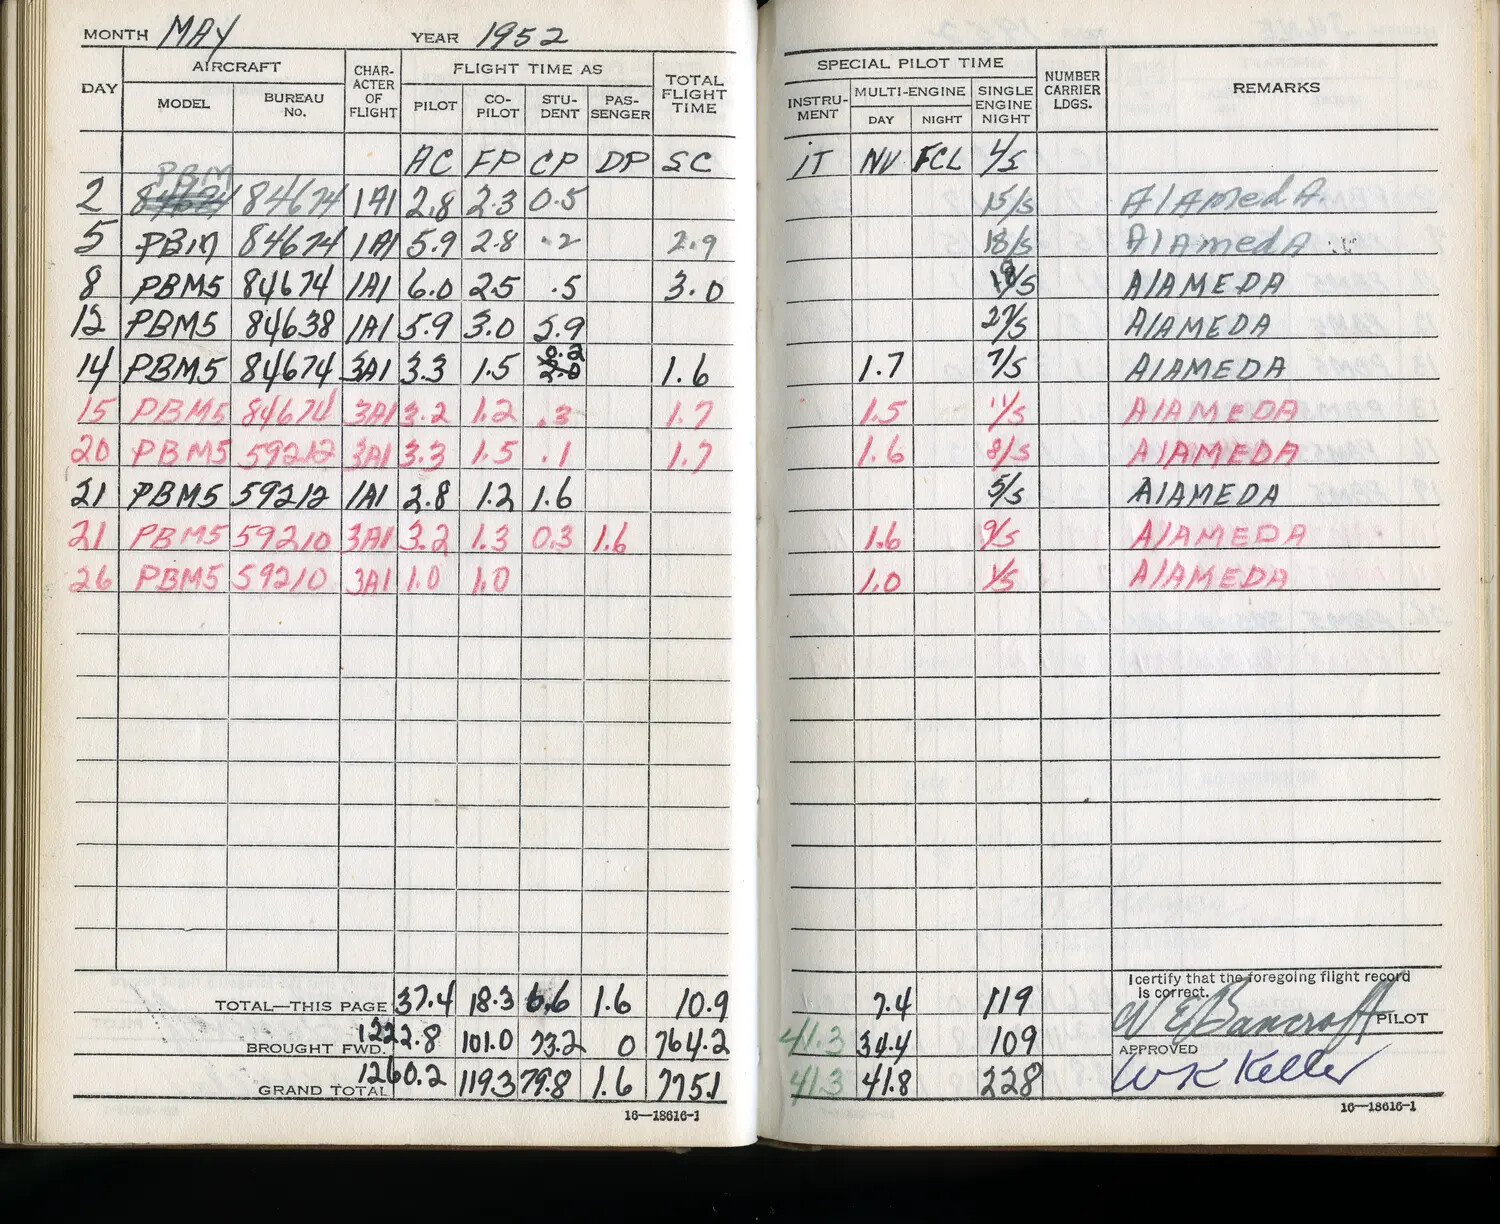 MONTH MAY YEAR 1952
DAY AIRCRAFT CHAR-ACTER OF FLIGHT FLIGHT TIME AS TOTAL FLIGHT TIME
MODEL BUREAU NO. PILOT CO-PILOT STU-DENT PAS-SENGER
AC FP CP DP SC
2 PBM 84674 1A1 2.8 2.3 0.5
5 PBM 84674 1A1 5.9 2.8 .2 2.9
8 PBM5 84674 1A1 6.0 2.5 .5 3.0
12 PBM5 84638 1A1 5.9 3.0 2.9
14 PBM5 84674 3A1 3.3 1.5 0.2 1.6
15 PBM5 84674 3A1 3.2 1.2 .3 1.7
20 PBM5 59212 3A1 3.3 1.5 .1 1.7
21 PBM5 59212 1A1 2.8 1.2 1.6
21 PBM5 59210 3A1 3.2 1.3 0.3 1.6
26 PBM5 59210 3A1 1.0 1.0
TOTAL—THIS PAGE 37.4 18.3 6.6 1.6 10.9
BROUGHT FWD. 1222.8 101.0 73.2 0 764.2
GRAND TOTAL 1260.2 119.3 79.8 1.6 775.1
16—18616-1
SPECIAL PILOT TIME NUMBER CARRIER LDGS. REMARKS
INSTRU-MENT MULTI-ENGINE SINGLE ENGINE NIGHT
DAY NIGHT
IT NV FCL 4/S
15/S AlAmedA.
18/S AlAmedA
18/S AlAMEDA
27/S AlAMEDA
1.7 7/S AlAMEDA
1.5 11/S AlAMEDA
1.6 8/S AlAMEDA
5/S AlAMEDA
1.6 9/S AlAMEDA
1.0 1/S AlAMEDA
I certify that the foregoing flight record is correct.
7.4 119 W E Bancroft PILOT
41.3 34.4 109 APPROVED
41.3 41.8 228 W K Keller
16—18616-1